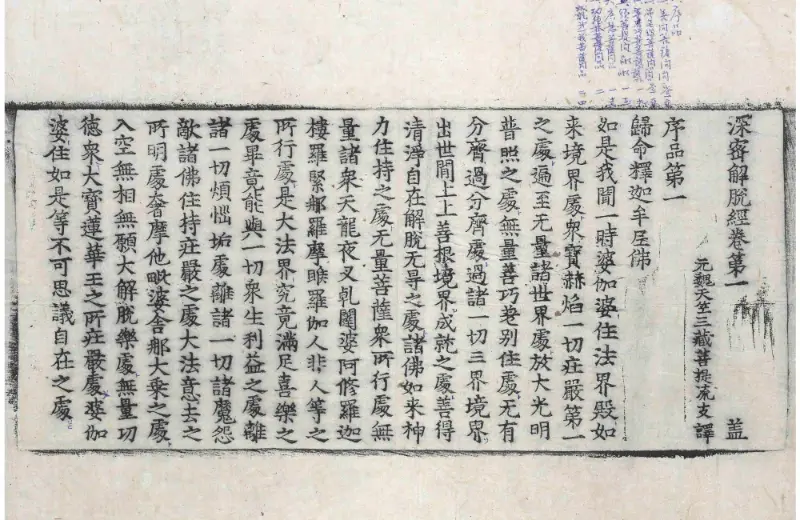 序品
深密解脫經卷第一 盖
元魏天竺三藏菩提流支譯
序品第一
歸命釋迦牟尼佛
如是我聞一時婆伽婆住法界殿如
来境界處衆寳赫焰一切庄嚴第一
之處遍至无量諸世界處放大光明
普照之處無量善巧差别住處无有
分齊過分齊處過諸一切三界境界
出世間上上善根境界成就之處善得
清淨自在解脫无㝵之處諸佛如来神
力住持之處无量菩薩衆所行處無
量諸衆天龍夜叉乹闥婆阿修羅迦
樓羅緊那羅摩睺羅伽人非人等之
所行處是大法界究竟滿足喜樂之
處畢竟能與一切衆生利益之處離
諸一切煩惱垢處離諸一切諸魔怨
敵諸佛住持庄嚴之處大法意去之
所明處奢摩他毗婆舍那大乗之處
入空無相無願大解脫樂處無量功
德衆大寳蓮華王之所庄嚴處婆伽
婆住如是等不可思議自在之處